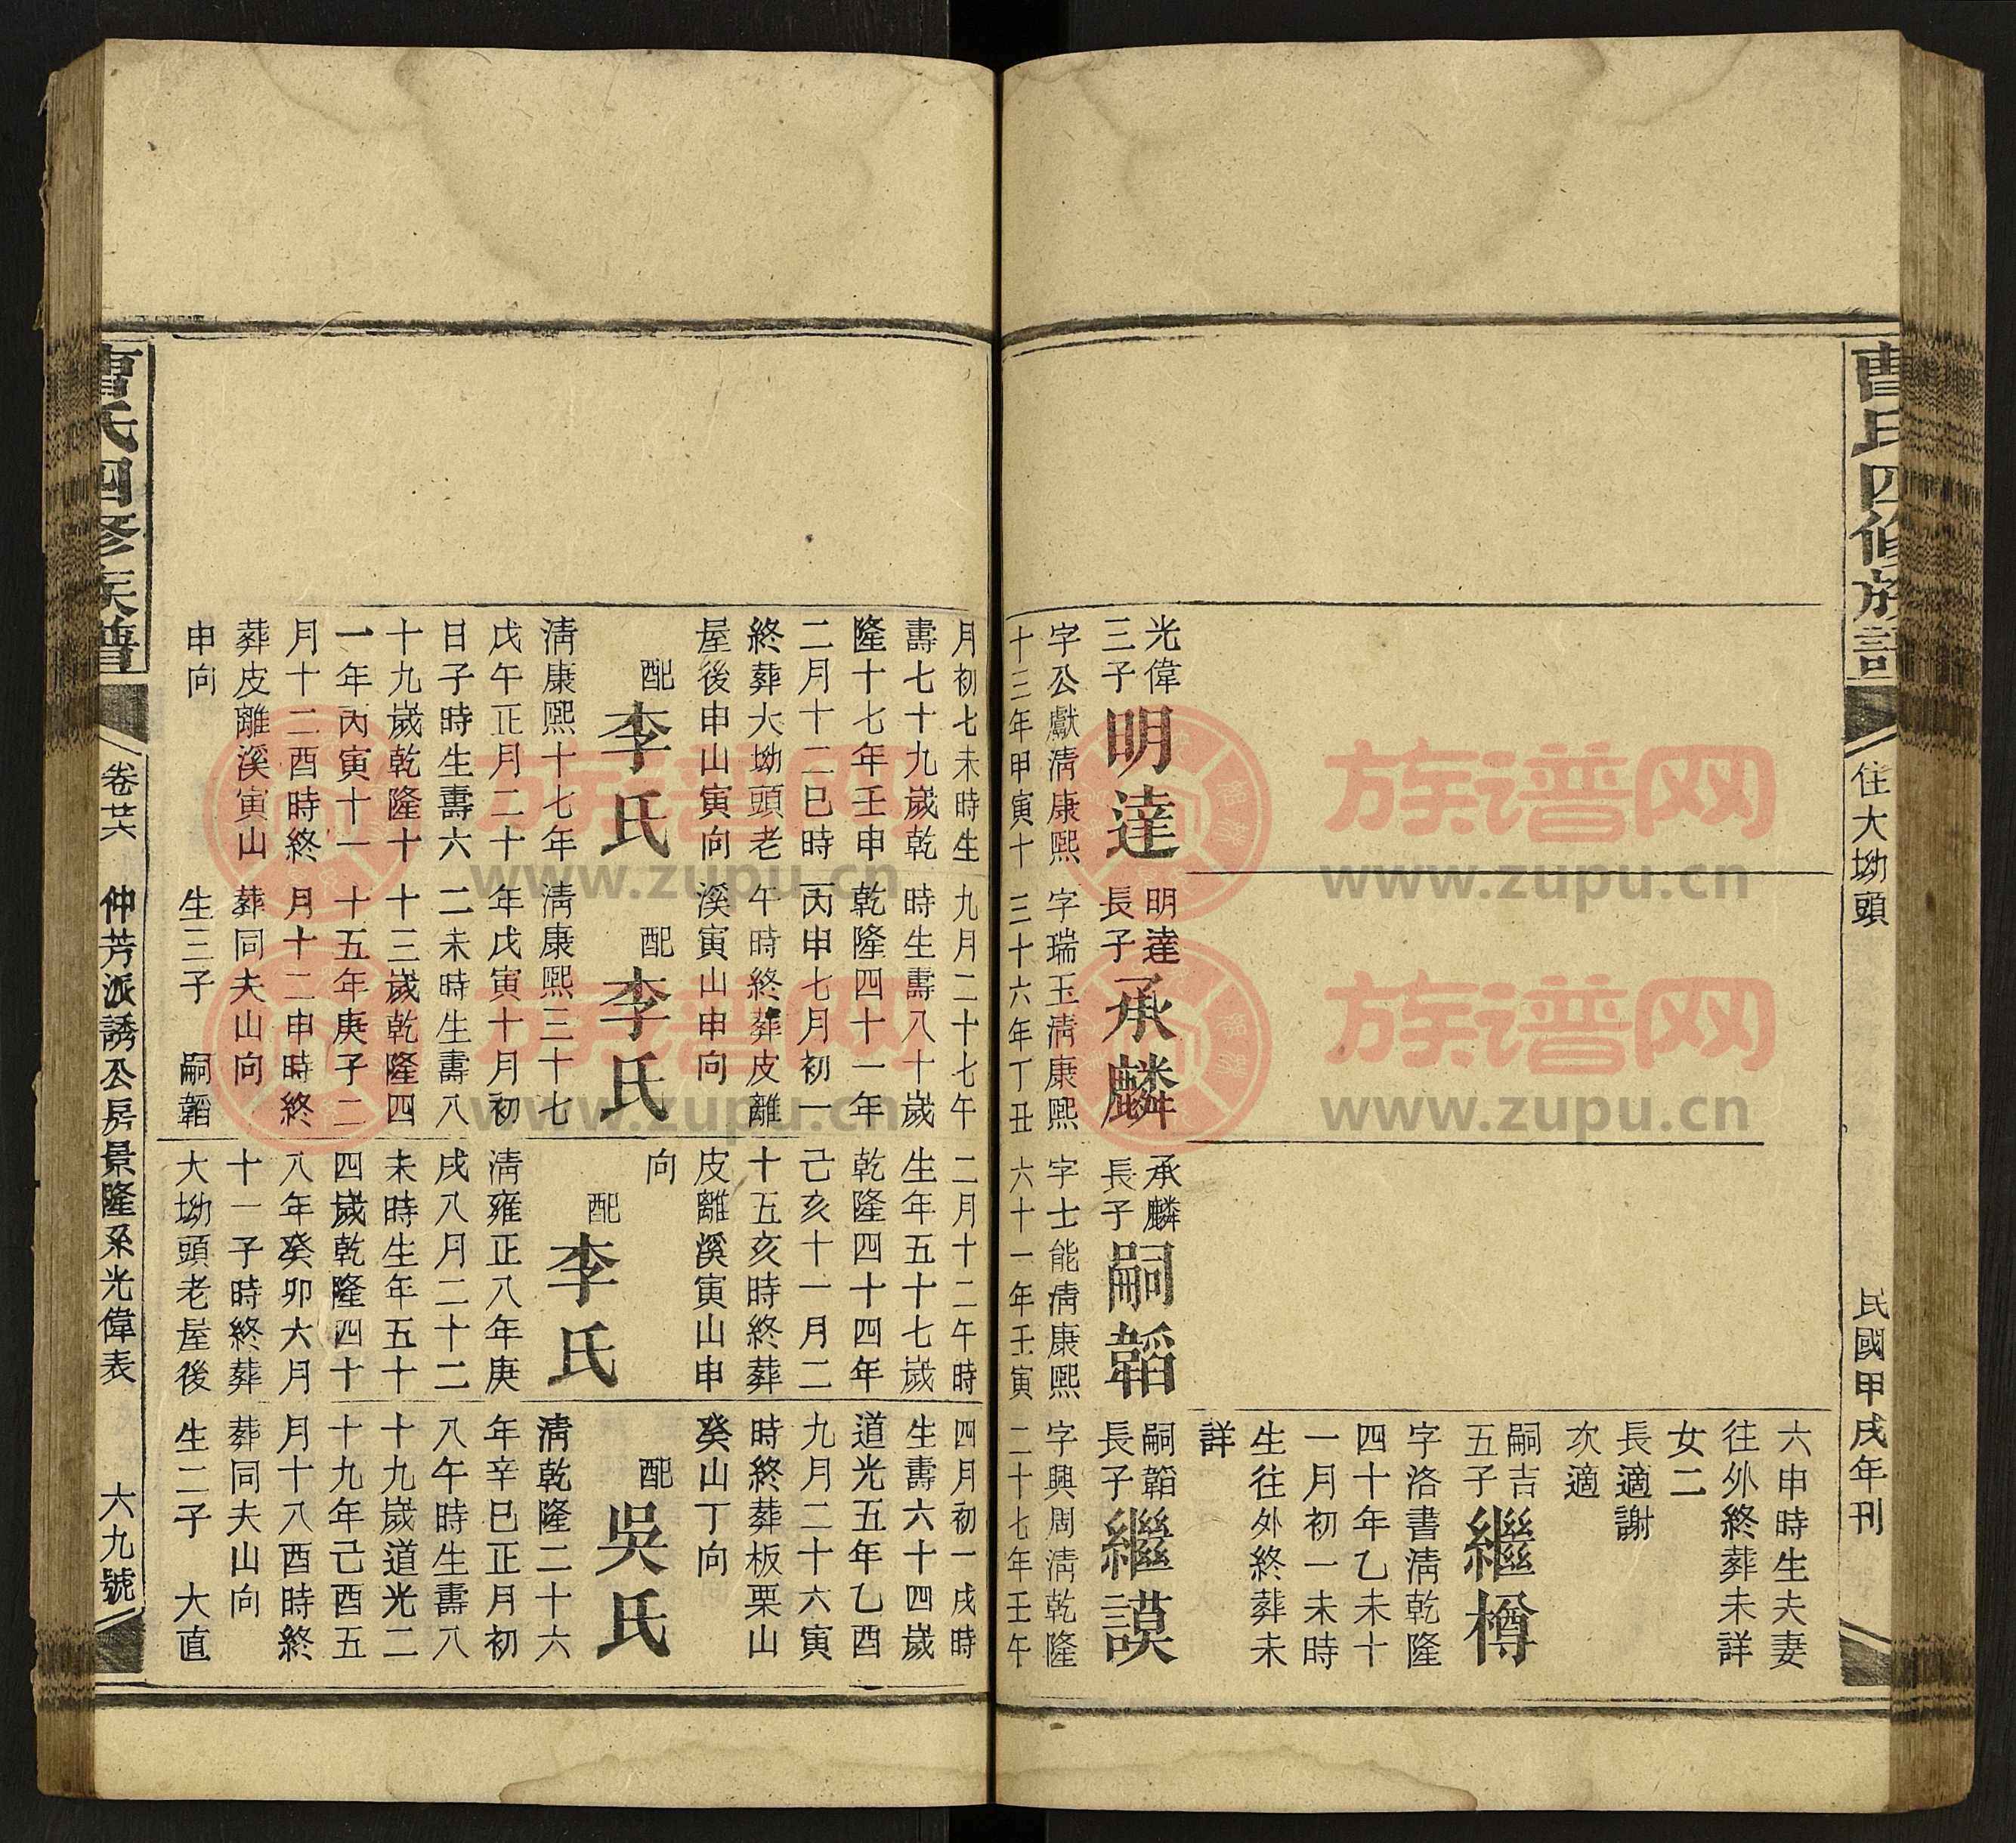 曹氏四修族譜
住大坳頭
民國甲戌年刊
六申時生夫妻
往外終葬未詳
女二
長適謝
次適
嗣吉
五子
繼樽
字洛書淸乾隆
四十年乙未十
一月初一未時
生往外終葬未
詳
光偉
三子
明達
字公獻淸康熙
十三年甲寅十
月初七未時生
壽七十九歲乾
隆十七年壬申
二月十二巳時
終葬大坳頭老
屋後申山寅向
配
李氏
淸康熙十七年
戊午正月二十
日子時生壽六
十九歲乾隆十
一年丙寅十一
月十二酉時終
葬皮離溪寅山
申向
明達
長子
承麟
字瑞玉淸康熙
三十六年丁丑
九月二十七午
時生壽八十歲
乾隆四十一年
丙申七月初一
午時終葬皮離
溪寅山申向
配
李氏
淸康熙三十七
年戊寅十月初
二未時生壽八
十三歲乾隆四
十五年庚子二
月十二申時終
葬同夫山向
生三子 嗣韜
承麟
長子
嗣韜
字士能淸康熙
六十一年壬寅
二月十二午時
生年五十七歲
乾隆四十四年
己亥十一月二
十五亥時終葬
皮離溪寅山申
向
配
李氏
淸雍正八年庚
戌八月二十二
未時生年五十
四歲乾隆四十
八年癸卯六月
十一子時終葬
大坳頭老屋後
嗣韜
長子
繼謨
字興周淸乾隆
二十七年壬午
四月初一戌時
生壽六十四歲
道光五年乙酉
九月二十六寅
時終葬板栗山
癸山丁向
配
吳氏
淸乾隆二十六
年辛巳正月初
八午時生壽八
十九歲道光二
十九年己酉五
月十八酉時終
葬同夫山向
生二子 大直
曹氏四修族譜
卷廿六
仲芳派誘公房景隆系光偉表
六九號
族谱网
www.zupu.cn
族谱网
www.zupu.cn
族谱网
www.zupu.cn
族谱网
www.zupu.cn